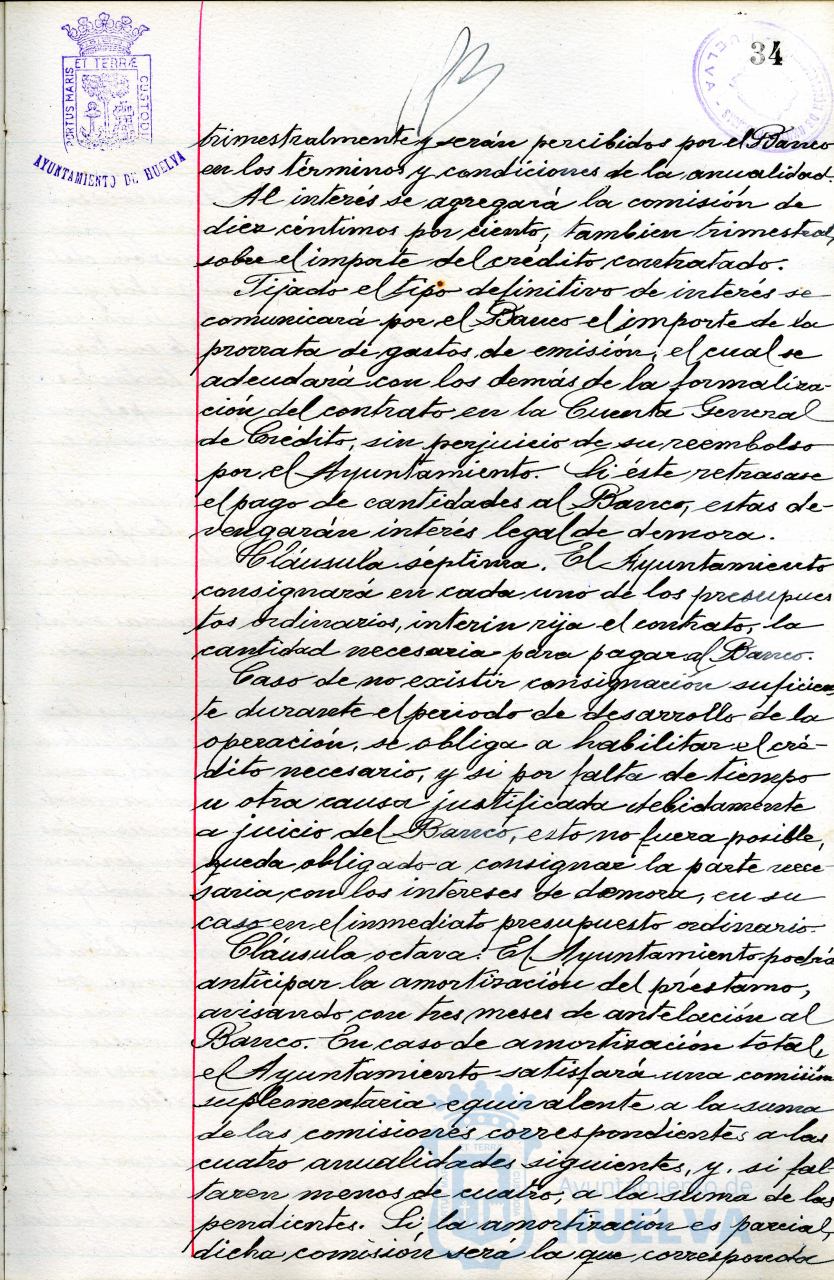 34
ET TERRÆ
PORTUS MARIS
CUSTODI
AYUNTAMIENTO DE HUELVA
HUELVA
trimestralmente y serán percibidos por el Banco
en los términos y condiciones de la anualidad.
Al interés se agregará la comisión de
diez céntimos por ciento, tambien trimestral,
sobre el importe del crédito contratado.
Fijado el tipo definitivo de interés se
comunicará por el Banco el importe de la
prorrata de gastos de emisión, el cual se
adeudará con los demás de la formaliza-
ción del contrato en la Cuenta General
de Crédito, sin perjuicio de su reembolso
por el Ayuntamiento. Si éste retrasase
el pago de cantidades al Banco, estas de-
vengarán interés legal de demora.
Cláusula séptima. El Ayuntamiento
consignará en cada uno de los presupues
tos ordinarios, interin rija el contrato, la
cantidad necesaria para pagar al Banco.
Caso de no existir consignación suficien
te durante el periodo de desarrollo de la
operación, se obliga a habilitar el cré-
dito necesario, y si por falta de tiempo
u otra causa justificada debidamente
a juicio del Banco, esto no fuera posible,
queda obligado a consignar la parte nece-
saria con los intereses de demora, en su
caso en el inmediato presupuesto ordinario.
Cláusula octava. El Ayuntamiento podrá
anticipar la amortización del préstamo,
avisando con tres meses de antelación al
Banco. En caso de amortización total,
el Ayuntamiento satisfará una comisión
suplementaria equivalente a la suma
de las comisiones correspondientes a las
cuatro anualidades siguientes, y, si fal
taren menos de cuatro, a la suma de las
pendientes. Si la amortizacion es parcial,
dicha comisión será la que corresponda
Ayuntamiento de
HUELVA